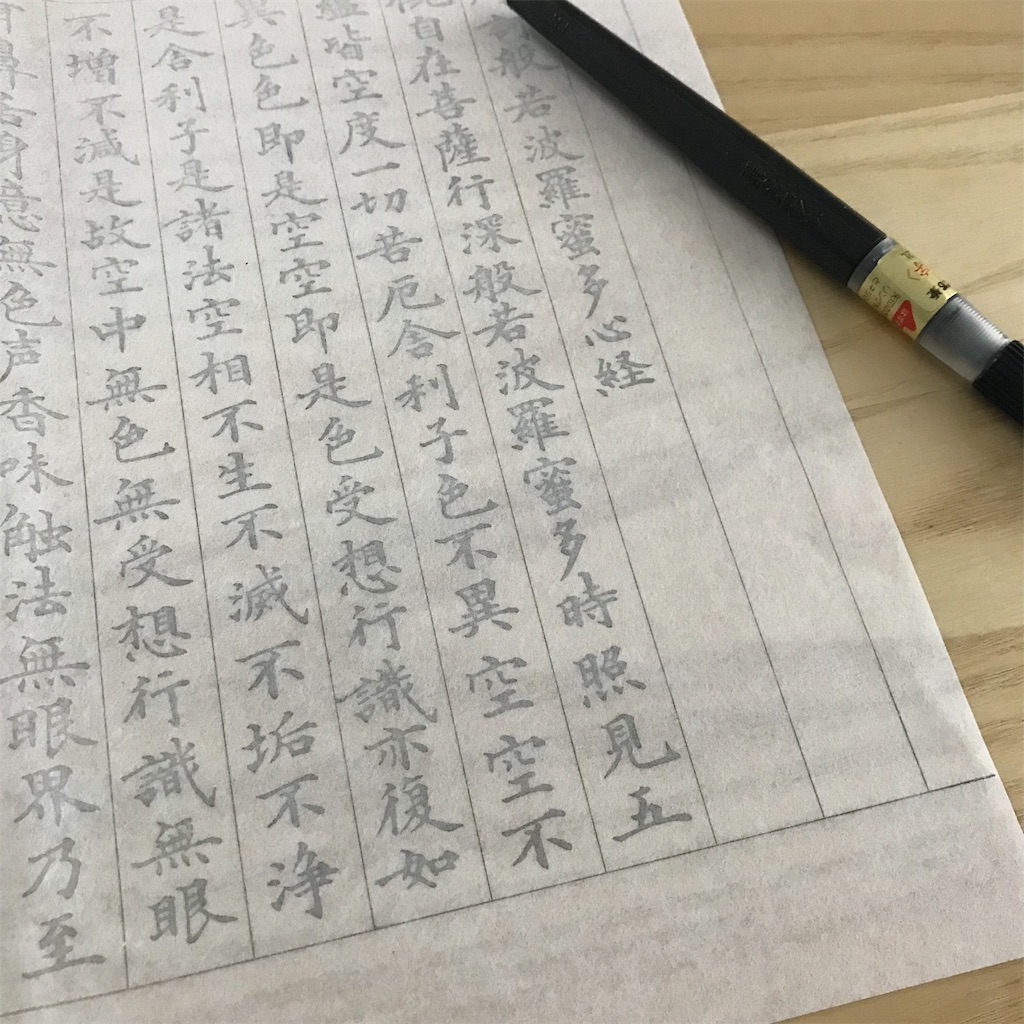 訶般若波羅蜜多心経
観自在菩薩行深般若波羅蜜多時照見五
蘊皆空度一切苦厄舎利子色不異空空不
異色色即是空空即是色受想行識亦復如
是舎利子是諸法空相不生不滅不垢不浄
不増不減是故空中無色無受想行識無眼
耳鼻舌身意無色声香味触法無眼界乃至